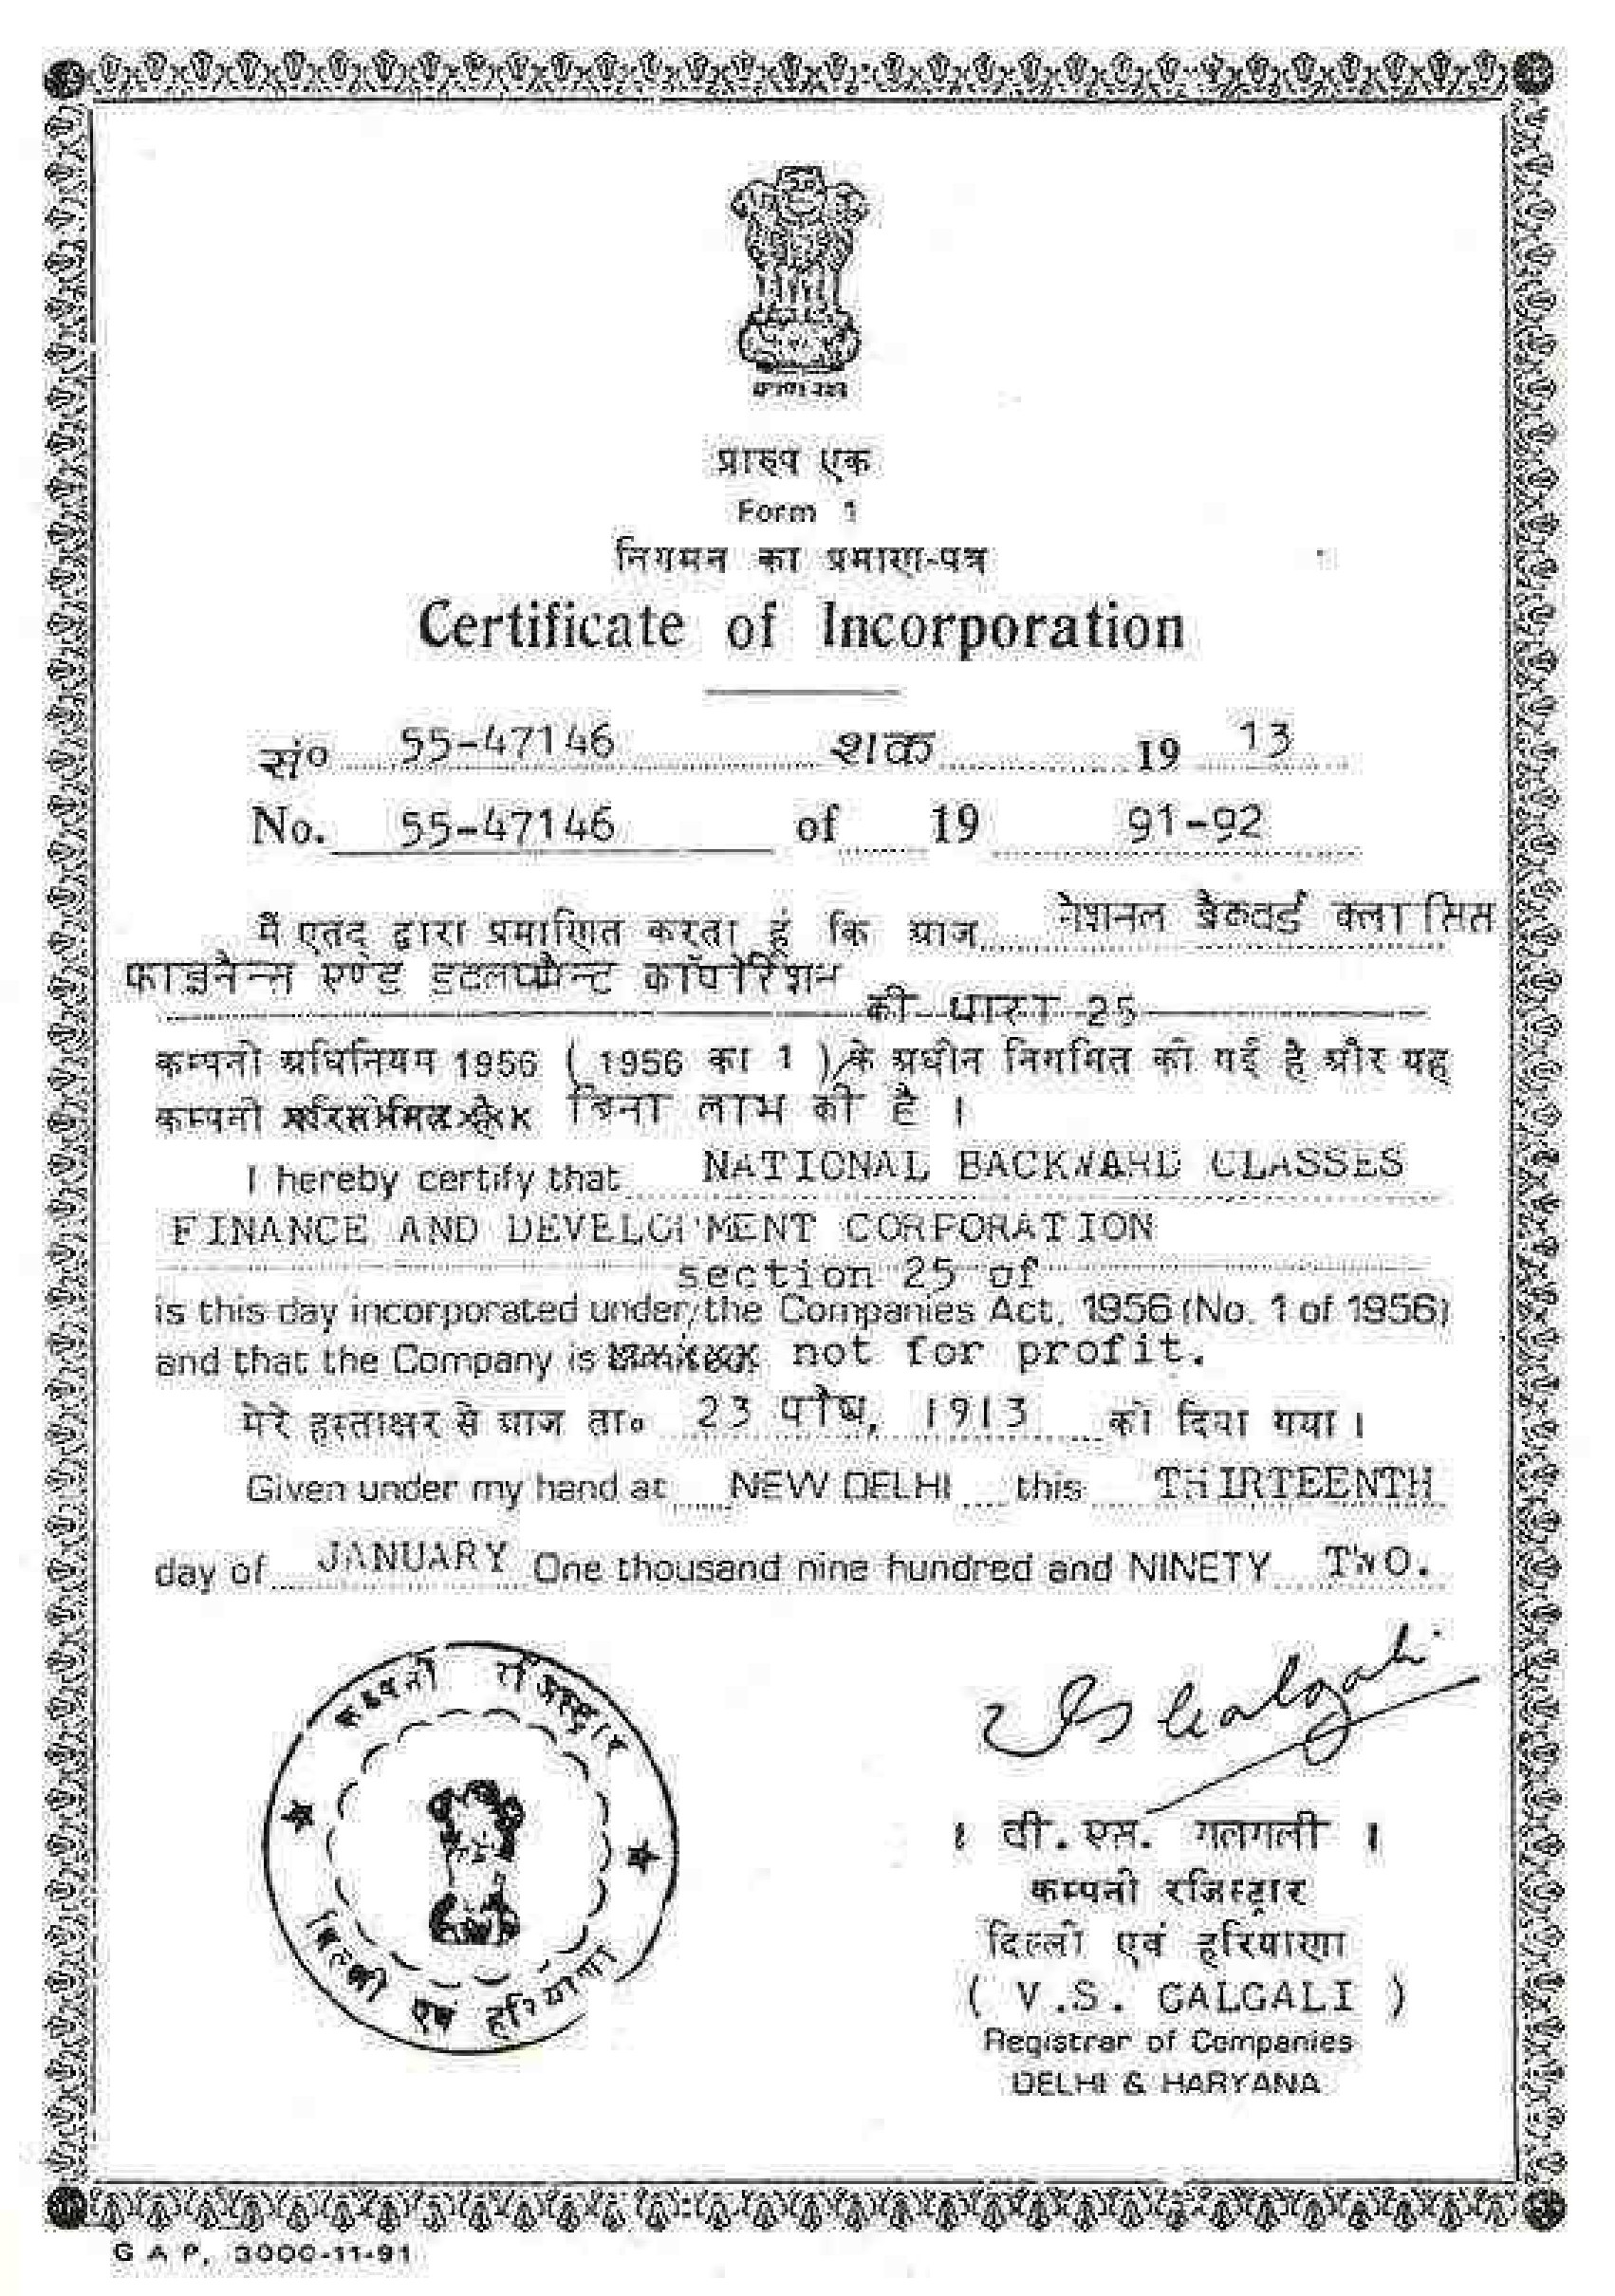 प्रारुप एक
Form 1
निगमन का प्रमाण-पत्र
Certificate of Incorporation
सं० 55-47146 शक 19 13
No. 55-47146 of 19 91-92
मैं एतद् द्वारा प्रमाणित करता हूं कि आज नेशनल बैकवर्ड क्लासिस
फाइनैन्स एण्ड कॉर्पोरेशन
की धारा 25
कम्पनी अधिनियम 1956 ( 1956 का 1 ) के अधीन निगमित की गई है और यह
कम्पनी बिना लाभ की है ।
I hereby certify that NATIONAL BACKWARD CLASSES
FINANCE AND DEVELOPMENT CORPORATION
section 25 of
is this day incorporated under/the Companies Act, 1956 (No. 1 of 1956)
and that the Company is not for profit.
मेरे हस्ताक्षर से आज ता० 23 पौष, 1913 को दिया गया ।
Given under my hand at NEW DELHI this THIRTEENTH
day of JANUARY One thousand nine hundred and NINETY TWO.
कम्पनी रजिस्ट्रार
दिल्ली एवं हरियाणा
। वी.एस. गलगली ।
कम्पनी रजिस्ट्रार
दिल्ली एवं हरियाणा
( V.S. GALGALI )
Registrar of Companies
DELHI & HARYANA
G A P, 3000-11-91